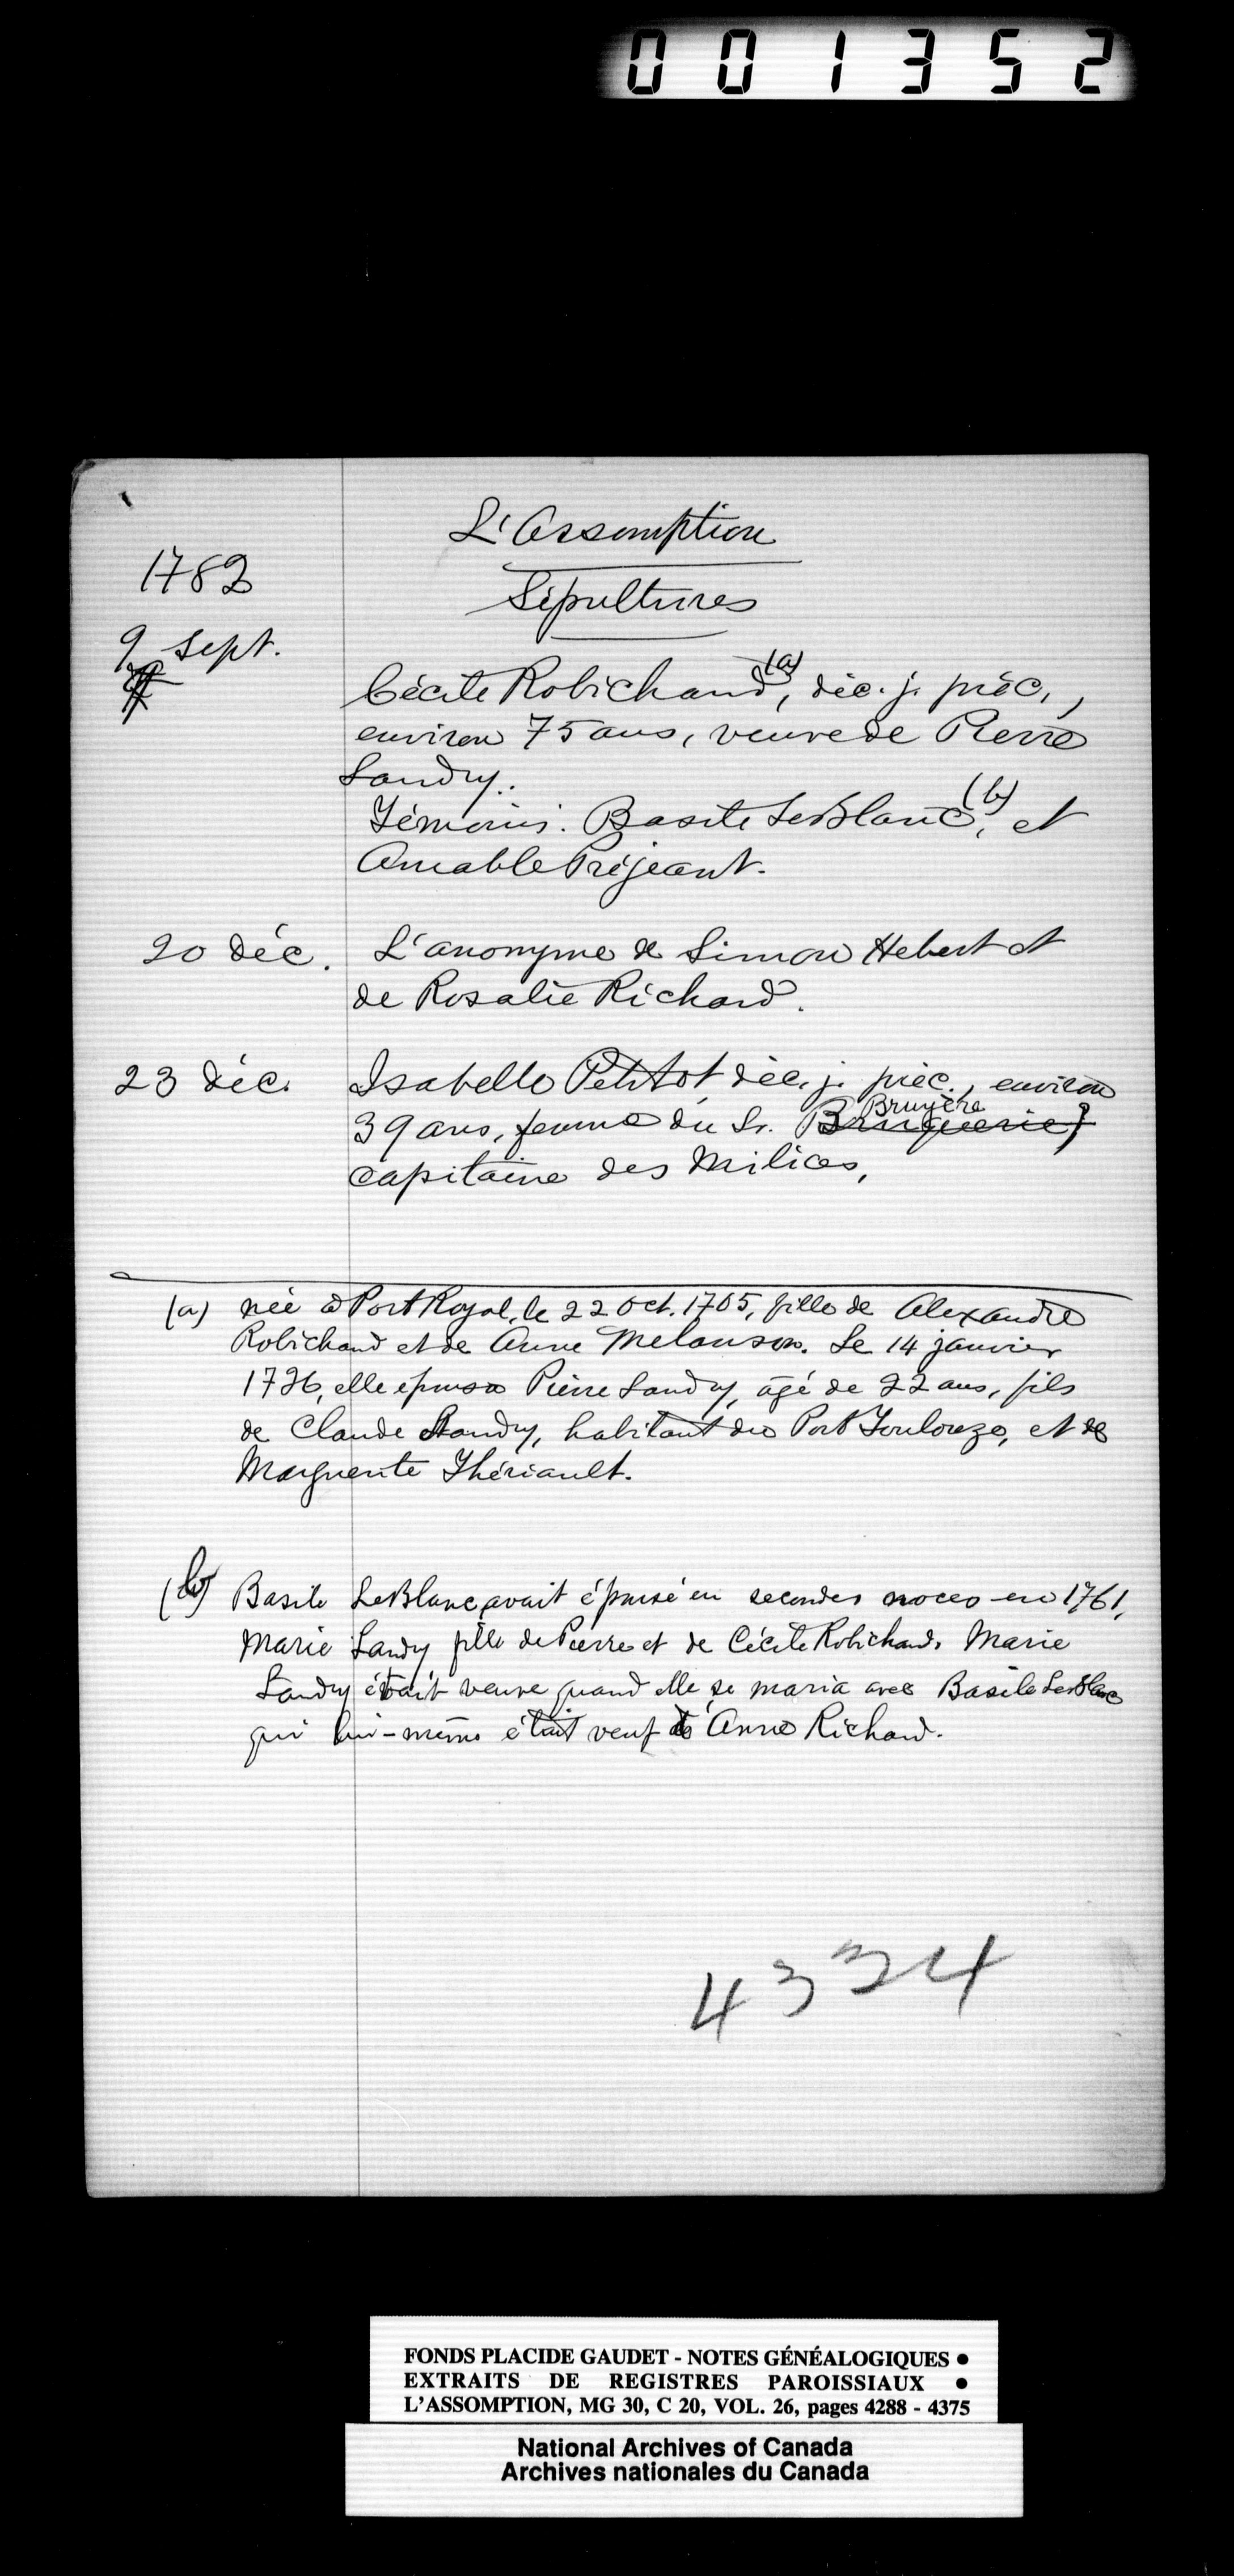 001352
L'Assomption
1782
Sépultures
9 Sept.
Cécile Robichaud (a), déc. j. préc.,
environ 75 ans, veuve de Pierre
Landry.
Témoins. Basile LeBlanc (b), et
Amable Préjeant.
20 déc. L'anonyme de Simon Hebert et
de Rosalie Richard.
23 déc. Isabelle Petitot, déc. j. préc., environ
39 ans, femme du Sr. Bruguerie, Bruyère
capitaine des Milices.
(a) née à Port Royal, le 22 Oct. 1705, fille de Alexandre
Robichaud et de Anne Melanson. Le 14 janvier
1726, elle épousa Pierre Landry, âgé de 22 ans, fils
de Claude Landry, habitant du Port Toulouze, et de
Marguerite Thériault.
(b) Basile LeBlanc avait épousé en secondes noces en 1761,
Marie Landry fille de Pierre et de Cécile Robichaud. Marie
Landry était veuve quand elle se maria avec Basile LeBlanc
qui lui-même était veuf de Anne Richard.
4324
FONDS PLACIDE GAUDET - NOTES GÉNÉALOGIQUES •
EXTRAITS DE REGISTRES PAROISSIAUX •
L'ASSOMPTION, MG 30, C 20, VOL. 26, pages 4288 - 4375
National Archives of Canada
Archives nationales du Canada